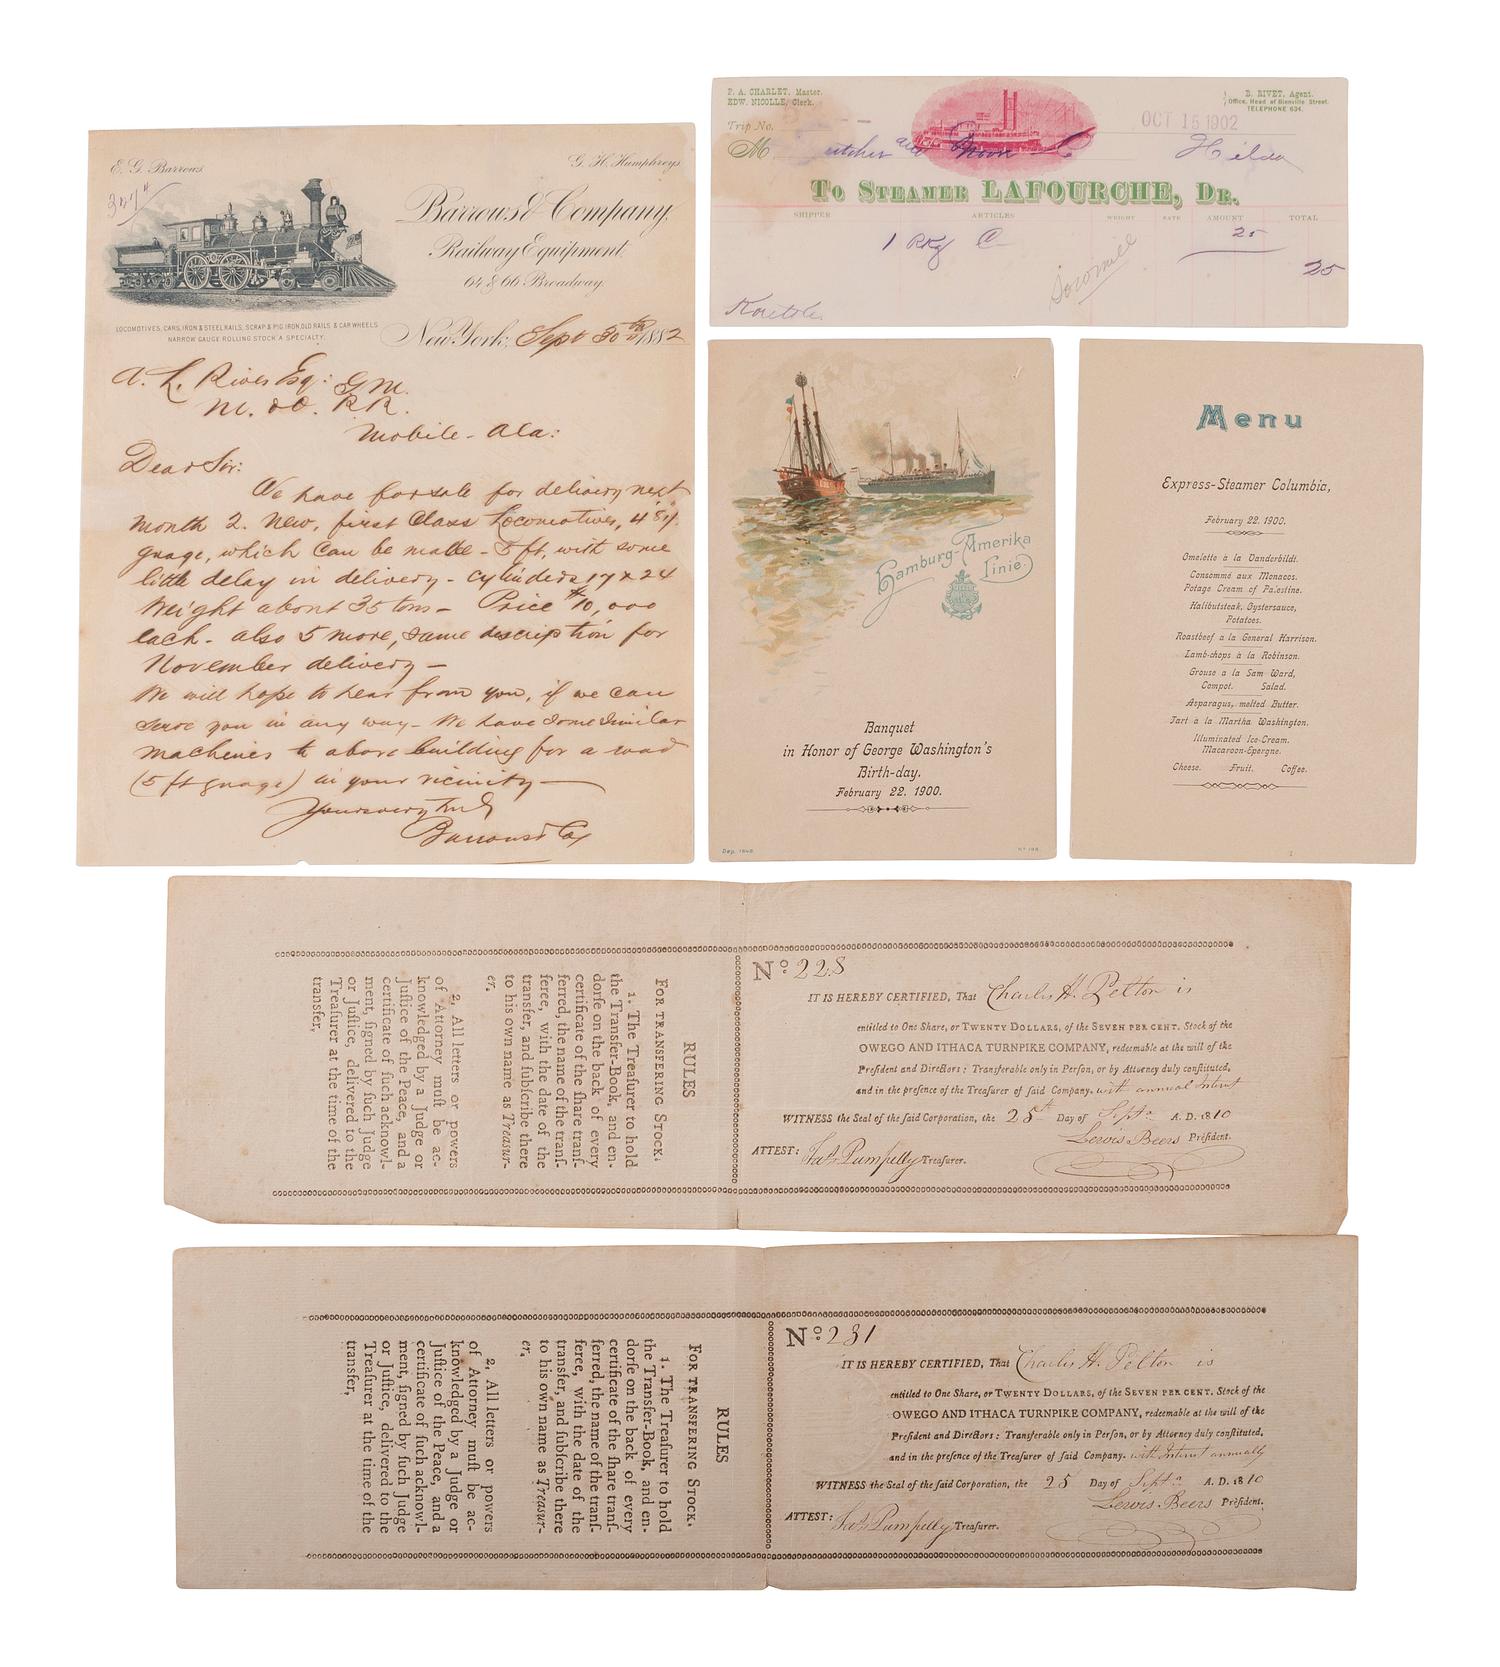 E. G. Barrows
G. H. Humphreys
Barrows & Company,
Railway Equipment
64 & 66 Broadway.
LOCOMOTIVES, CARS, IRON & STEEL RAILS, SCRAP & PIG IRON, OLD RAILS & CAR WHEELS
NARROW GAUGE ROLLING STOCK A SPECIALTY.
New York, Sept 30th 1882
A. L. Rives Esq: G.M.
M. & O. R.R.
Mobile - Ala:
Dear Sir:
We have for sale for delivery next
month 2. New, first Class Locomotives, 4'8½
guage, which can be made - 5 ft, with some
little delay in delivery - Cylinders 17 x 24
Weight about 35 tons - Price $10,000
each - also 5 more, same description for
November delivery -
We will hope to hear from you, if we can
serve you in any way - We have some similar
machines to above building for a road
(5 ft guage) in your vicinity -
Yours very truly
Barrows & Co
P. A. CHARLET, Master.
EDW. NICOLLE, Clerk.
B. RIVET, Agent.
Office, Head of Bienville Street.
TELEPHONE 634.
Trip No.
OCT 15 1902
M and Moon Hilda
TO STEAMER LAFOURCHE, DR.
SHIPPER ARTICLES WEIGHT RATE AMOUNT TOTAL
1 Pkg C 25
25
Hamburg-Amerika
Linie.
Banquet
in Honor of George Washington's
Birth-day.
February 22. 1900.
Dep. 1848.
Menu
Express-Steamer Columbia,
February 22. 1900.
Omelette à la Vanderbildt.
Consommé aux Monacos.
Potage Cream of Palestine.
Halibutsteak, Oystersauce,
Potatoes.
Roastbeef a la General Harrison.
Lamb-chops à la Robinson.
Grouse a la Sam Ward,
Compot. Salad.
Asparagus, melted Butter.
Tart à la Martha Washington.
Illuminated Ice-Cream.
Macaroon-Epergne.
Cheese. Fruit. Coffee.
RULES
FOR TRANSFERING STOCK.
1. The Treaſurer to hold
the Transfer-Book, and en-
dorſe on the back of every
certificate of the ſhare tranſ-
ferred, the name of the tranſ-
feree, with the date of the
transfer, and ſubſcribe there
to his own name as Treasur-
er.
2. All letters or powers
of Attorney muſt be ac-
knowledged by a Judge or
Juſtice of the Peace, and a
certificate of ſuch acknowl-
ment, ſigned by ſuch Judge
or Juſtice, delivered to the
Treaſurer at the time of the
transfer,
No: 228
IT IS HEREBY CERTIFIED, That Charles H. Pelton is
entitled to One Share, or TWENTY DOLLARS, of the SEVEN PER CENT. Stock of the
OWEGO AND ITHACA TURNPIKE COMPANY, redeemable at the will of the
Preſident and Directors: Transferable only in Person, or by Attorney duly conſtituted,
and in the preſence of the Treaſurer of ſaid Company. with annual Intrest
WITNESS the Seal of the ſaid Corporation, the 25th Day of Septr A. D. 1810
Lewis Beers Preſident.
ATTEST: Jas Pumpelly Treaſurer.
RULES
FOR TRANSFERING STOCK.
1. The Treaſurer to hold
the Transfer-Book, and en-
dorſe on the back of every
certificate of the ſhare tranſ-
ferred, the name of the tranſ-
feree, with the date of the
transfer, and ſubſcribe there
to his own name as Treasur-
er.
2. All letters or powers
of Attorney muſt be ac-
knowledged by a Judge or
Juſtice of the Peace, and a
certificate of ſuch acknowl-
ment, ſigned by ſuch Judge
or Juſtice, delivered to the
Treaſurer at the time of the
transfer,
No: 231
IT IS HEREBY CERTIFIED, That Charles H. Pelton is
entitled to One Share, or TWENTY DOLLARS, of the SEVEN PER CENT. Stock of the
OWEGO AND ITHACA TURNPIKE COMPANY, redeemable at the will of the
Preſident and Directors: Transferable only in Person, or by Attorney duly conſtituted,
and in the preſence of the Treaſurer of ſaid Company. with Intrest annually
WITNESS the Seal of the ſaid Corporation, the 25 Day of Septr A. D. 1810
Lewis Beers Preſident.
ATTEST: Jas Pumpelly Treaſurer.